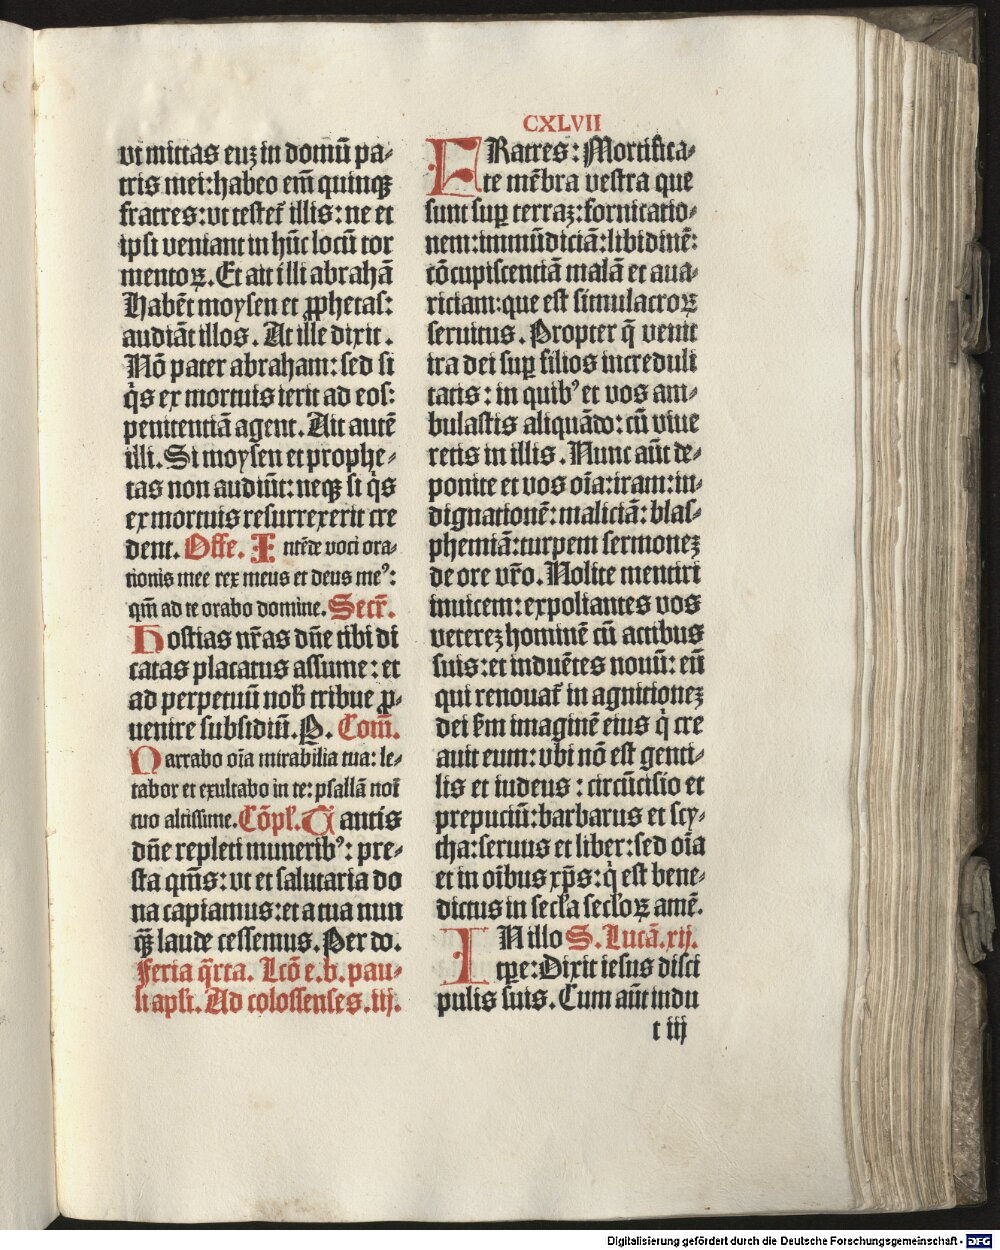 CXLVII
vt mittas euʒ in domū pa⸗
tris mei: habeo em̄ quinqꝫ
fratres: vt testet̄ illis: ne et
ipsi veniant in hūc locū tor
mentoꝝ. Et ait illi abrahā
Habēt moysen et ꝓphetas:
audiāt illos. At ille dixit.
Nō pater abraham: sed si
q̇s ex mortuis ierit ad eos:
penitentiā agent. Ait autē
illi. Si moysen et prophe⸗
tas non audiūt: neqꝫ si q̇s
ex mortuis resurrexerit cre
dent. Offe. Intēde voci ora⸗
tionis mee rex meus et deus meꝰ:
qm̄ ad te orabo domine. Secr̄.
Hostias nr̄as dn̄e tibi di
catas placatus assume: et
ad perpetuū nob̄ tribue ꝓ⸗
uenire subsidiū. P. Com̄.
Narrabo oīa mirabilia tua: le⸗
tabor et exultabo in te: psallā noī
tuo altissime. Cōpl. Tantis
dn̄e repleti muneribꝰ: pre⸗
sta qm̄s: vt et salutaria do
na capiamus: et a tua nun
qꝫ laude cessemus. Per do.
Feria q̄rta. Lcō e. b. pau⸗
li apl̄i. Ad colossenses. iij.
FRatres: Mortifica⸗
te mēbra vestra que
sunt suꝑ terraʒ: fornicatio⸗
nem: immūdiciā: libidinē:
cōcupiscentiā malā et aua⸗
riciam: que est simulacroꝝ
seruitus. Propter q̄ venit
ira dei suꝑ filios increduli
tatis: in quibꝰ et vos am⸗
bulastis aliquādo: cū viue
retis in illis. Nunc aūt de⸗
ponite et vos oīa: iram: in⸗
dignationē: maliciā: blas⸗
phemiā: turpem sermoneʒ
de ore vr̄o. Nolite mentiri
inuicem: expoliantes vos
vetereʒ hominē cū actibus
suis: et induētes nouū: eū
qui renouat̄ in agnitioneʒ
dei ẜm imaginē eius q̇ cre
auit eum: vbi nō est genti⸗
lis et iudeus: circūcisio et
prepuciū: barbarus et scy⸗
tha: seruus et liber: sed oīa
et in oībus xp̄s: q̇ est bene⸗
dictus in secl̄a secl̄oꝝ amē.
IN illo S. Lucā. xij.
tp̄e: Dixit iesus disci
pulis suis. Cum aūt indu
t iij
Digitalisierung gefördert durch die Deutsche Forschungsgemeinschaft - DFG